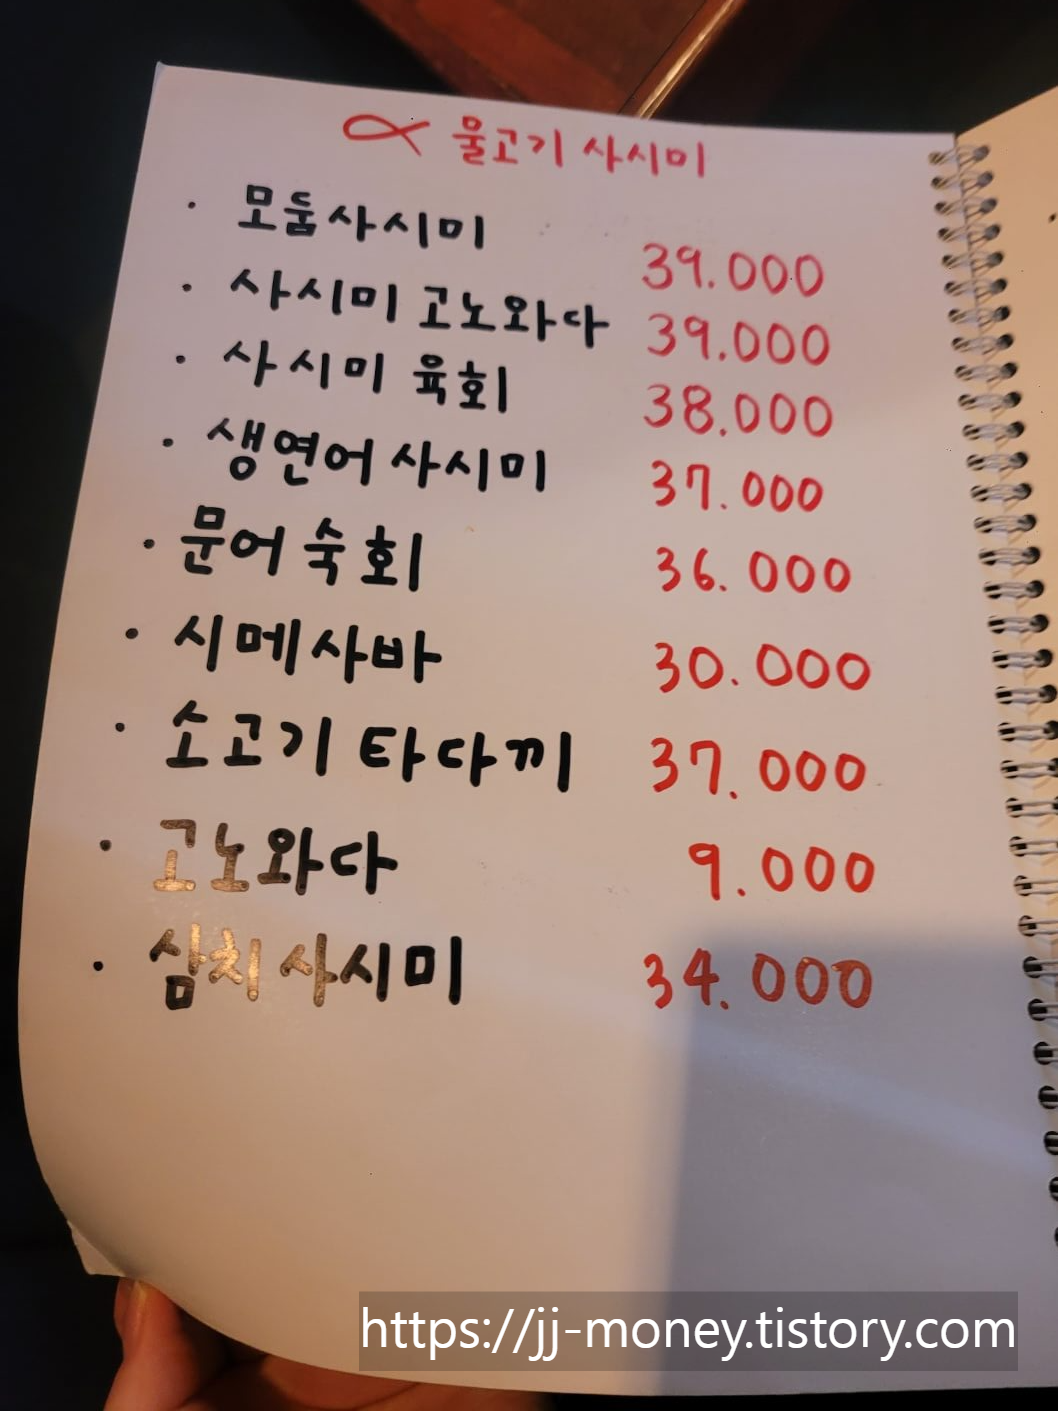 물고기 사시미
· 모둠사시미 39.000
· 사시미 고노와다 39.000
· 사시미 육회 38.000
· 생연어 사시미 37.000
· 문어 숙회 36.000
· 시메사바 30.000
· 소고기 타다끼 37.000
· 고노와다 9.000
· 삼치 사시미 34.000
https://jj-money.tistory.com